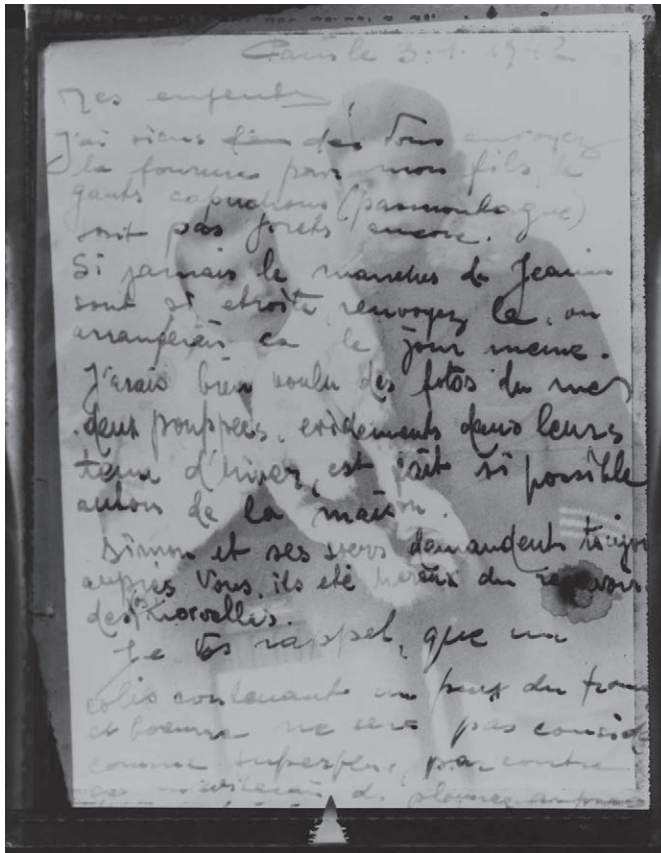 Paris le 3.1.1942
Mes enfents
J'ai viens des Vous envoyez
la fourrure pour mon fils, le
gants capuchons (passmontagne)
sont pas forets encore.
Si jamais le manches de Jeanine
sont si etroite renvoyez la, on
arrangerais ca le jour meme.
J'erais bien voulu des fotos du mes
deux pouppées, evidements dans leurs
tenu d'hiver, est fait si possible
autour de la maison.
Simon et ses soers demandents toujou
auprès Vous, ils eté du
des
Je Vs rappel, que un
colis contenante un peux du from
et boeurre ne sera pas conside
comme superflu, par contre